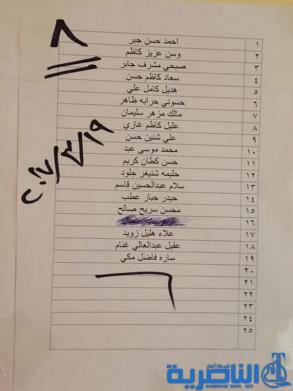 ٨
٢٠١٧/٣/١٩
١ احمد حسن جبر
٢ وسن عزيز كاظم
٣ صبحي مشرف جابر
٤ سعاد كاظم حسن
٥ هديل كامل علي
٦ حسوني حرابه ظاهر
٧ مالك مزهر سليمان
٨ عليل كاظم غازي
٩ علي شنين حسن
١٠ محمد موسى عبد
١١ حسن كطان كريم
١٢ حليمه شنيغر جلود
١٣ سلام عبدالحسين قاسم
١٤ حيدر جبار عطب
١٥ محسن سريح صالح
١٦
١٧ علاء هليل زويد
١٨ عقيل عبدالعالي غنام
١٩ ساره فاضل مكي
٢٠
٢١
٢٢
٢٣
٢٤
٢٥
الناصرية